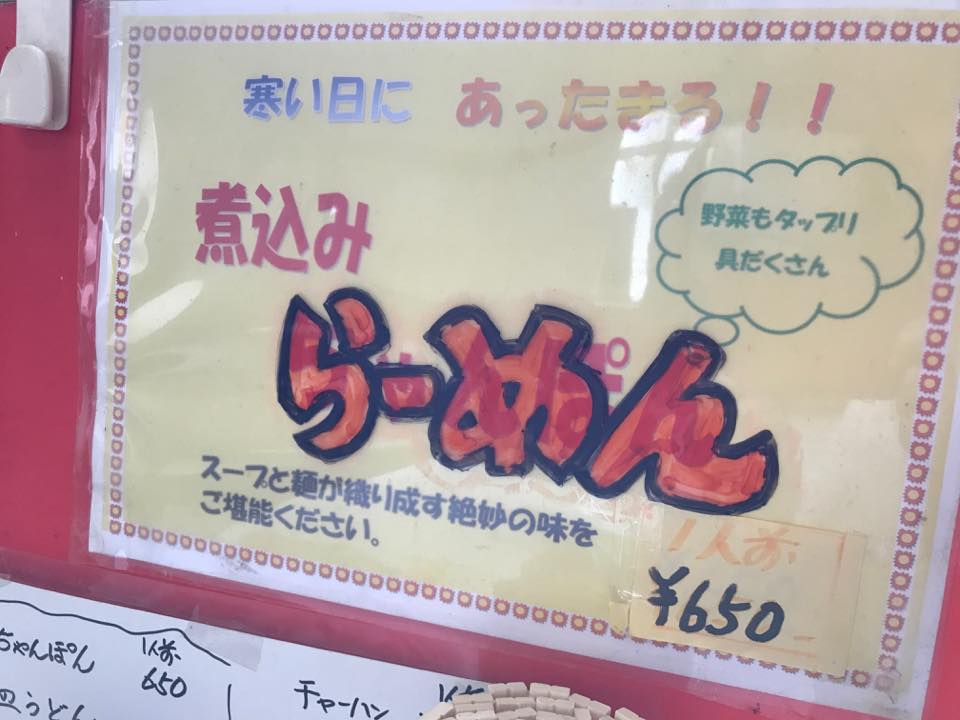 寒い日に あったきろ！！
野菜もタップリ
具だくさん
煮込み
らーめん
スープと麺が織り成す絶妙の味を
ご堪能ください。
1人前
¥650
ちゃんぽん 1人前
650
皿うどん
チャーハン